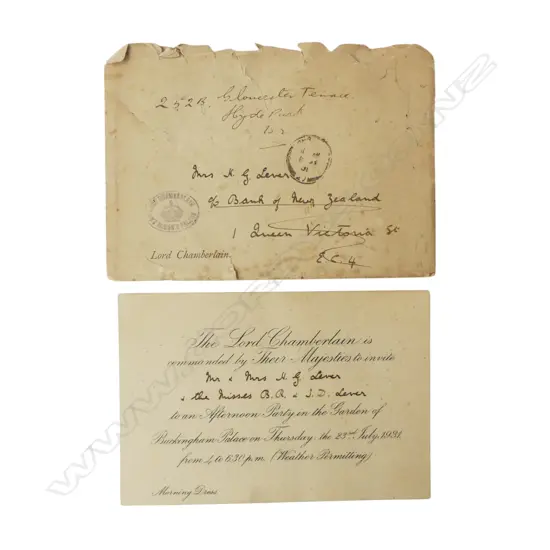 Gloucester Terrace
Hyde Park
Mrs H. G. Lever
c/o Bank of New Zealand
1 Queen Victoria St
E.C.4
Lord Chamberlain.
The Lord Chamberlain is
commanded by Their Majesties to invite
Mr & Mrs H. G. Lever
& the Misses B.A. & J.D. Lever
to an Afternoon Party in the Garden of
Buckingham Palace on Thursday the 23rd July, 1931,
from 4 to 6.30 p.m. (Weather Permitting)
Morning Dress